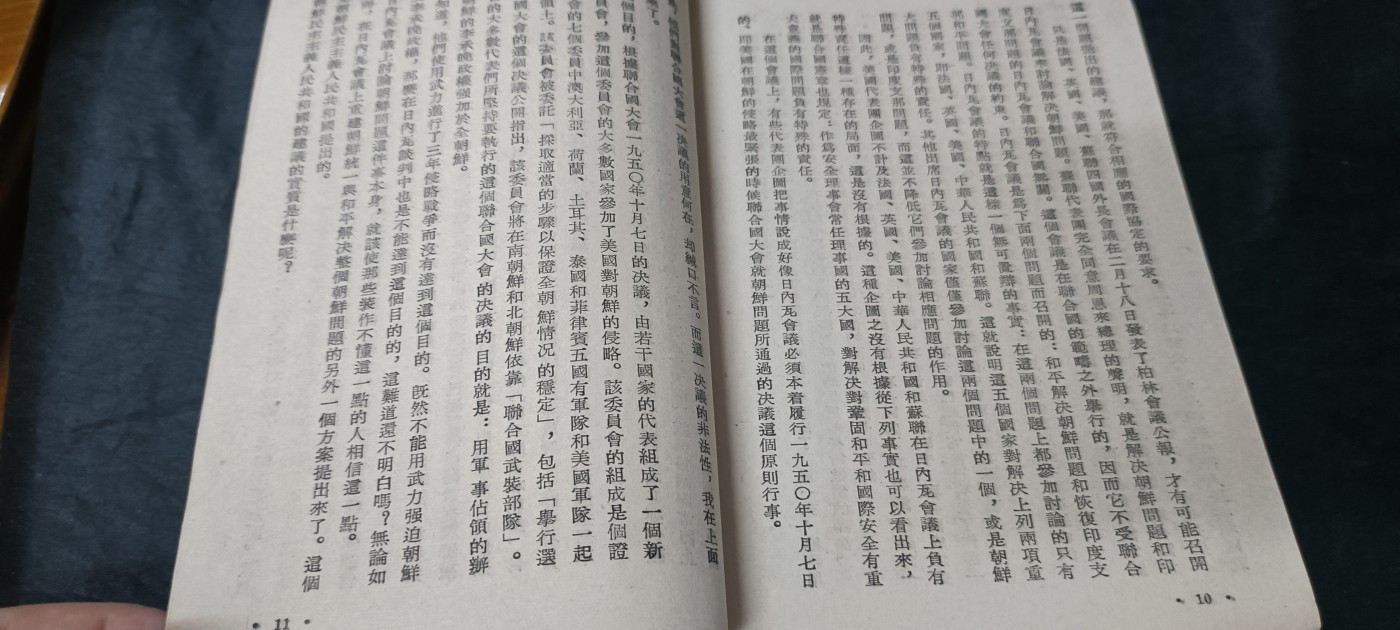 這一問題提出的建議，那就符合相應的國際協定的要求。
只是法國、英國、美國、蘇聯四國外長會議在二月十八日發表了柏林會議公報，才有可能召開
日內瓦會議來討論解決朝鮮問題。蘇聯代表團完全同意周恩來總理的聲明，就是解決朝鮮問題和印
度支那問題的日內瓦會議和聯合國無關。這個會議是在聯合國的範疇之外舉行的，因而它不受聯合
國大會任何決議的約束。日內瓦會議是爲下面兩個問題而召開的：和平解決朝鮮問題和恢復印度支
那和平問題。日內瓦會議的特點就是這樣一個無可置辯的事實：在這兩個問題上都參加討論的只有
五個國家，即法國、英國、美國、中華人民共和國和蘇聯。這就說明這五個國家對解決上列兩項重
大問題負有特殊的責任。其他出席日內瓦會議的國家僅僅參加討論這兩個問題中的一個，或是朝鮮
問題，或是印度支那問題，而這並不降低它們參加討論相應問題的作用。
因此，美國代表團企圖不計及法國、英國、美國、中華人民共和國和蘇聯在日內瓦會議上負有
特殊責任這樣一種存在的局面，這是沒有根據的。這種企圖之沒有根據從下列事實也可以看出來，
就是聯合國憲章也規定：作爲安全理事會常任理事國的五大國，對解決對鞏固和平和國際安全有重
大意義的國際問題負有特殊的責任。
在這個會議上，有些代表團企圖把事情說成好像日內瓦會議必須本着履行一九五〇年十月七日
的、即美國在朝鮮的侵略最緊張的時候聯合國大會就朝鮮問題所通過的決議這個原則行事。
們對聯合國大會這一決議的用意何在，却緘口不言。而這一決議的非法性，我在上面
了。
個目的，根據聯合國大會一九五〇年十月七日的決議，由若干國家的代表組成了一個新
員會，參加這個委員會的大多數國家參加了美國對朝鮮的侵略。該委員會的組成是個證
會的七個委員中澳大利亞、荷蘭、土耳其、泰國和菲律賓五國有軍隊和美國軍隊一起
領土。該委員會被委託「採取適當的步驟以保證全朝鮮情況的穩定」，包括「舉行選
國大會的這個決議公開指出，該委員會將在南朝鮮和北朝鮮依靠「聯合國武裝部隊」。
的大多數代表們所堅持要執行的這個聯合國大會的決議的目的就是：用軍事佔領的辦
朝鮮的李承晚政權強加於全朝鮮。
知道，他們使用武力進行了三年侵略戰爭而沒有達到這個目的。既然不能用武力强迫朝鮮
李承晚政權，那麼在日內瓦談判中也是不能達到這個目的的，這難道還不明白嗎？無論如
內瓦會議上討論朝鮮問題這件事本身，就該使那些裝作不懂這一點的人相信這一點。
，在日內瓦會議上重建朝鮮統一與和平解決整個朝鮮問題的另外一個方案提出來了。這個
朝鮮民主主義人民共和國提出的。
朝鮮民主主義人民共和國的建議的實質是什麼呢？
• 10 •
• 11 •